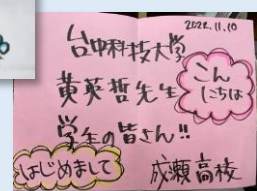 2022.11.10
台中科技大学
黄英哲先生
こんにちは
学生の皆さん!!
はじめまして
成瀬高校